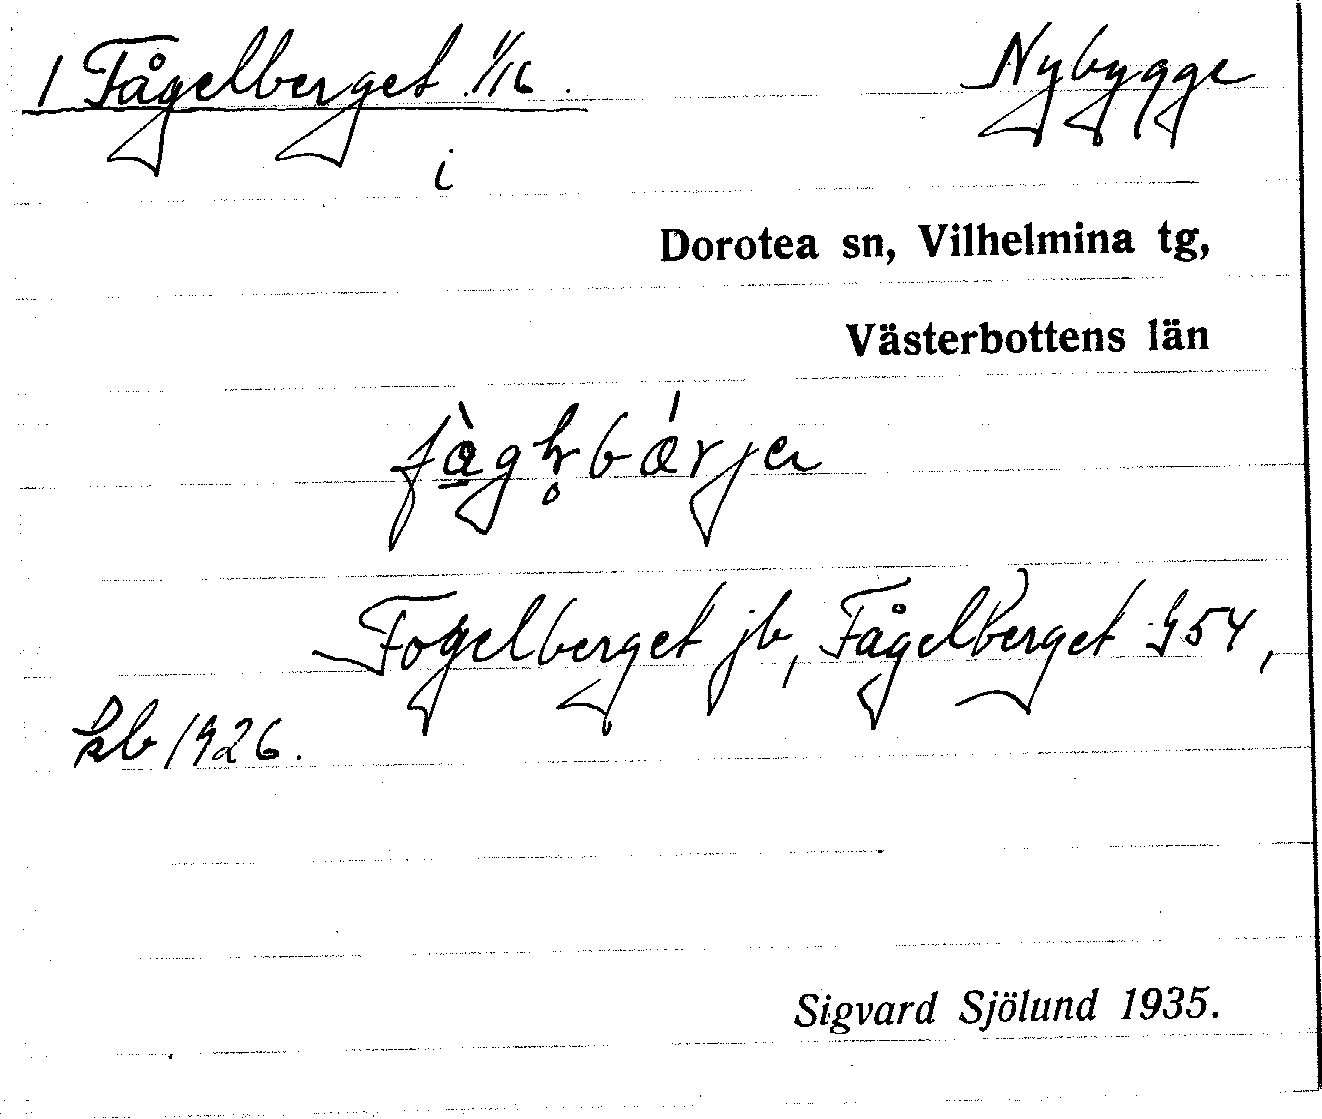 1 Fågelberget 1/16. Nybygge
i
Dorotea sn, Vilhelmina tg,
Västerbottens län
Fogelberget jb, Fågelberget G54,
kb 1926.
Sigvard Sjölund 1935.